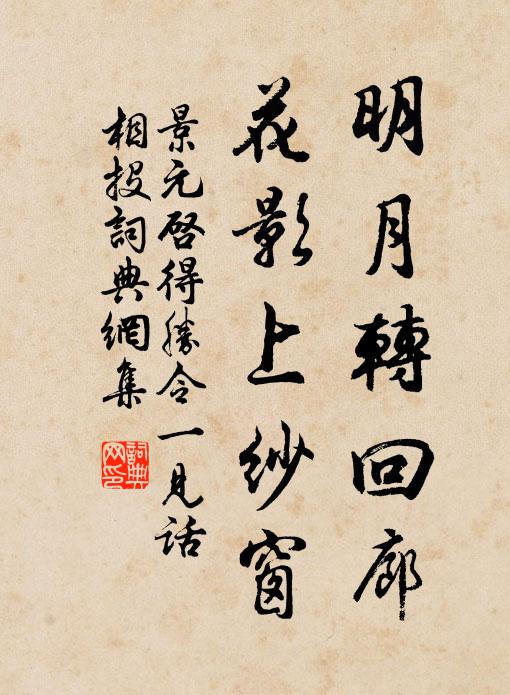 明月轉回廊
花影上紗窗
景元啓得勝令一見話
相投詞典網集
詞典
网印